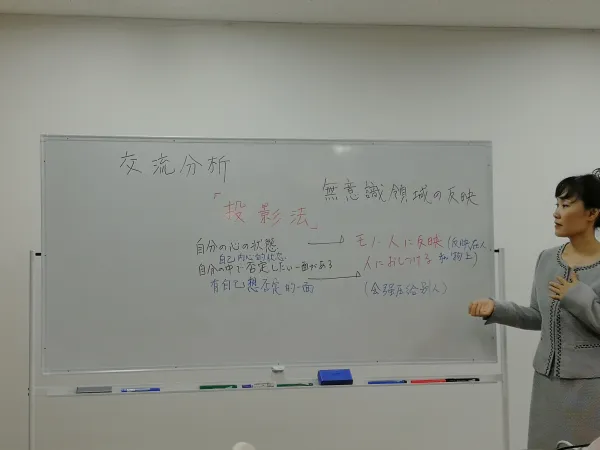 交流分析
無意識領域の反映
「投影法」
自分の心の状態 → モノ・人に反映(反映在人和物上)
自己内心的状态
自分の中で否定したい一面がある → 人におしつける
有自己想否定的一面 (会强压给别人)